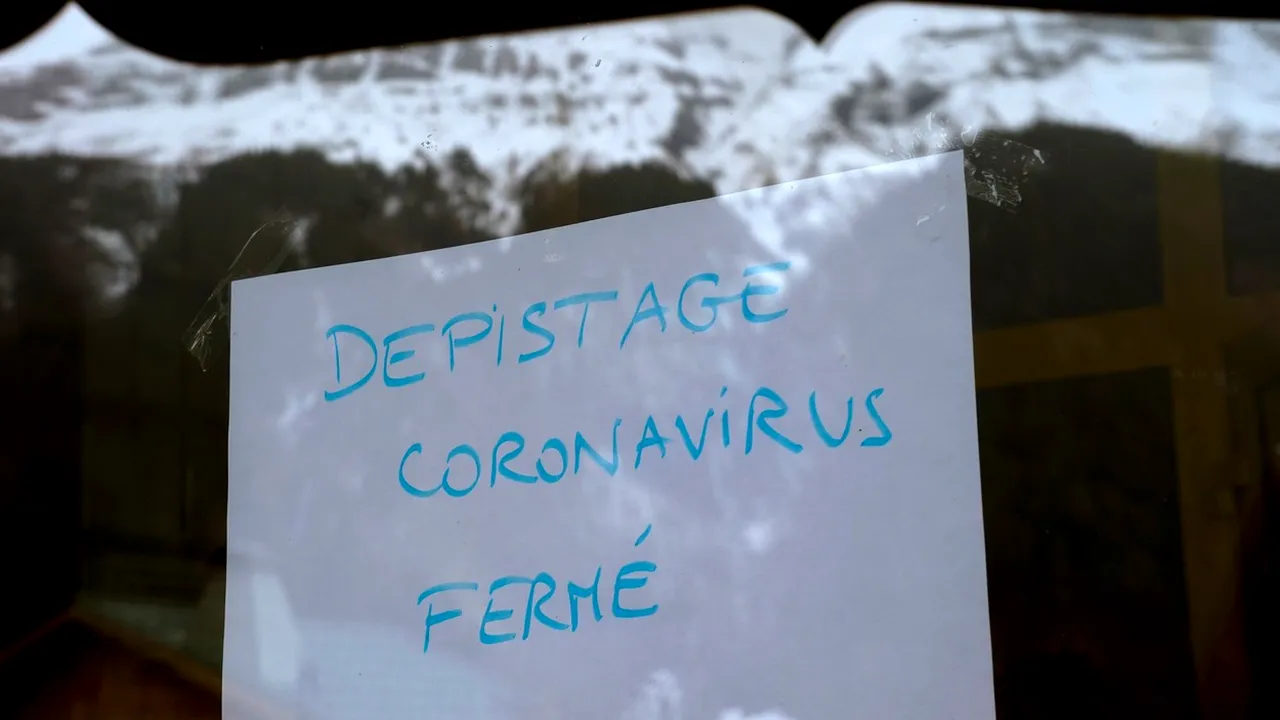 DEPISTAGE
CORONAVIRUS
FERMÉ